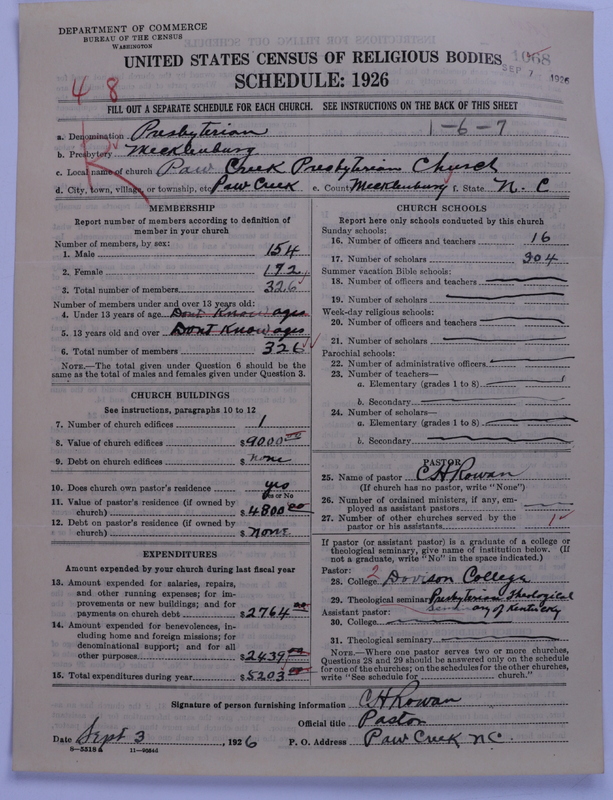 DEPARTMENT OF COMMERCE
BUREAU OF THE CENSUS
WASHINGTON
1068
SEP 7 1926
UNITED STATES CENSUS OF RELIGIOUS BODIES
SCHEDULE: 1926
4 8
FILL OUT A SEPARATE SCHEDULE FOR EACH CHURCH. SEE INSTRUCTIONS ON THE BACK OF THIS SHEET
a. Denomination Presbyterian 1-6-7
b. Presbytery Mecklenburg
c. Local name of church Paw Creek Presbyterian Church
d. City, town, village, or township, etc Paw Creek e. County Mecklenburg f. State N. C
R
MEMBERSHIP
Report number of members according to definition of
member in your church
Number of members, by sex:
1. Male 154
2. Female 172
3. Total number of members 326
Number of members under and over 13 years old:
4. Under 13 years of age Dont Know ages
5. 13 years old and over Dont Know ages
6. Total number of members 326
NOTE.—The total given under Question 6 should be the
same as the total of males and females given under Question 3.
CHURCH BUILDINGS
See instructions, paragraphs 10 to 12
7. Number of church edifices 1
8. Value of church edifices $9000 00
9. Debt on church edifices $ none
10. Does church own pastor's residence yes
Yes or No
11. Value of pastor's residence (if owned by
church) $4800 00
12. Debt on pastor's residence (if owned by
church) $ none
EXPENDITURES
Amount expended by your church during last fiscal year
13. Amount expended for salaries, repairs,
and other running expenses; for im-
provements or new buildings; and for
payments on church debt $2764 00
14. Amount expended for benevolences, in-
cluding home and foreign missions; for
denominational support; and for all
other purposes $2439 00
15. Total expenditures during year $5203 00
CHURCH SCHOOLS
Report here only schools conducted by this church
Sunday schools:
16. Number of officers and teachers 16
17. Number of scholars 304
Summer vacation Bible schools:
18. Number of officers and teachers
19. Number of scholars
Week-day religious schools:
20. Number of officers and teachers
21. Number of scholars
Parochial schools:
22. Number of administrative officers
23. Number of teachers—
a. Elementary (grades 1 to 8)
b. Secondary
24. Number of scholars—
a. Elementary (grades 1 to 8)
b. Secondary
PASTOR
25. Name of pastor C H Rowan
(If church has no pastor, write "None")
26. Number of ordained ministers, if any, em-
ployed as assistant pastors
27. Number of other churches served by the
pastor or his assistants 1
If pastor (or assistant pastor) is a graduate of a college or
theological seminary, give name of institution below. (If
not a graduate, write "No" in the space indicated.)
Pastor:
28. College 2 Davison College
29. Theological seminary Presbyterian Theological
Assistant pastor: Semi ary of Kentucky
30. College
31. Theological seminary
NOTE.—Where one pastor serves two or more churches,
Questions 28 and 29 should be answered only on the schedule
for one of the churches; on the schedules for the other churches,
write "See schedule for church."
Signature of person furnishing information C H Rowan
Official title Pastor
Date Sept 3, 1926 P. O. Address Paw Creek N.C.
9-5518a 11-9684d